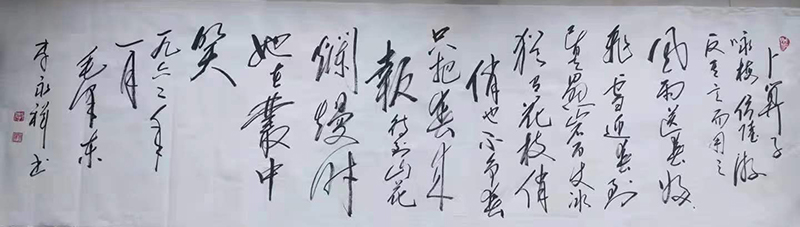 卜算子
咏梅 陆游
反其而用之
风雨送春归
飞雪迎春到
已是悬岩百丈冰
犹有花枝俏
俏也不争春
只把春来
报待到山花
爛熳时
她在叢中
笑
一九六二年
一月
毛泽东
李永祥书